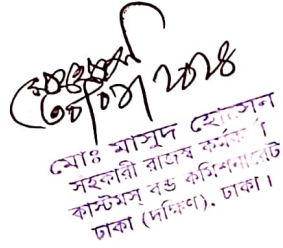 ৩০/০১/২০২৪
মোঃ মাসুদ হোসেন
সহকারী রাজস্ব কর্মকর্তা
কাস্টমস্ বন্ড কমিশনারেট
ঢাকা (দক্ষিণ), ঢাকা।